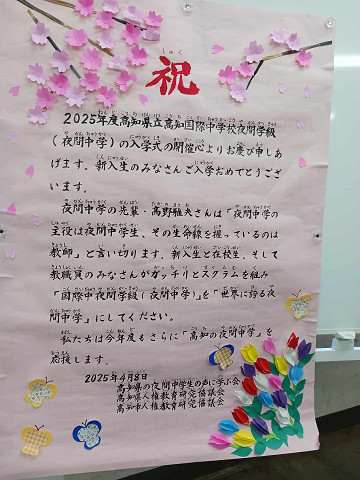 祝
2025年度高知県立高知国際中学校夜間学級
(夜間中学)の入学式の開催心よりお慶び申しあ
げます。新入生のみなさんご入学おめでとうござ
います。
夜間中学の先輩・髙野雅夫さんは「夜間中学の
主役は夜間中学生、その生命線を握っているのは
教師」と言い切ります。新入生と在校生、そして
教職員のみなさんがガッチリとスクラムを組み
「国際中夜間学級(夜間中学)」を「世界に誇る夜
間中学」にしてください。
私たちは今年度もさらに「高知の夜間中学」を
応援します。
2025年4月8日
高知県の夜間中学生の声に学ぶ会
高知県人権教育研究協議会
高知市人権教育研究協議会